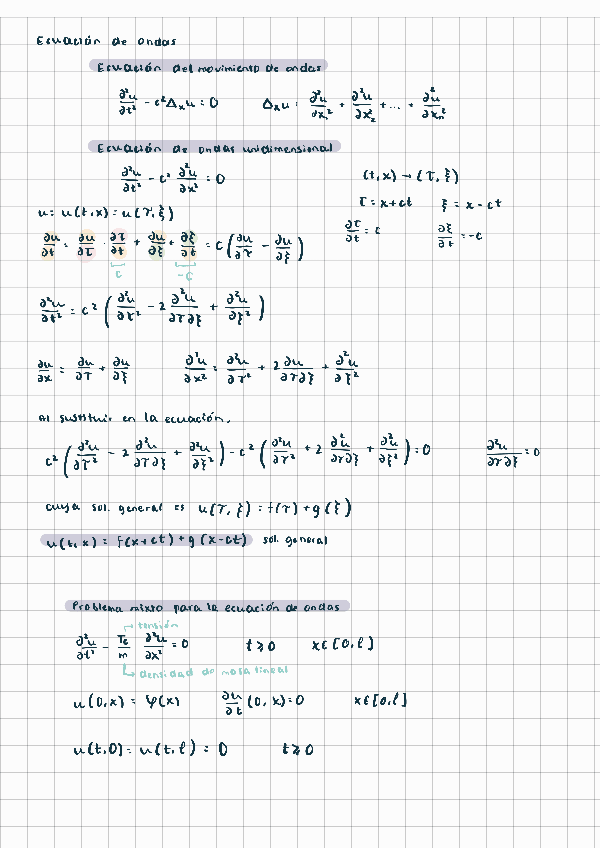 Ecuación de ondas
Ecuación del movimiento de ondas
∂²u/∂t² - c²Δₓu = 0    Δₓu = ∂²u/∂x₁² + ∂²u/∂x₂² + ... + ∂²u/∂xₙ²
Ecuación de ondas unidimensional
∂²u/∂t² - c² ∂²u/∂x² = 0    (t,x) → (τ,ξ)
τ = x+ct    ξ = x-ct
u = u(t,x) = u(τ,ξ)
∂τ/∂t = c    ∂ξ/∂t = -c
∂u/∂t = ∂u/∂τ ∂τ/∂t + ∂u/∂ξ + ∂ξ/∂t = c (∂u/∂τ - ∂u/∂ξ)
c    -c
∂²u/∂t² = c² (∂²u/∂τ² - 2 ∂²u/∂τ∂ξ + ∂²u/∂ξ²)
∂u/∂x = ∂u/∂τ + ∂u/∂ξ    ∂²u/∂x² = ∂²u/∂τ² + 2 ∂u/∂τ∂ξ + ∂²u/∂ξ²
Al sustituir en la ecuación,
c² (∂²u/∂τ² - 2 ∂²u/∂τ∂ξ + ∂²u/∂ξ²) - c² (∂²u/∂τ² + 2 ∂²u/∂τ∂ξ + ∂²u/∂ξ²) = 0    ∂²u/∂τ∂ξ = 0
cuya sol. general es u(τ,ξ) = f(τ) + g(ξ)
u(t,x) = f(x+ct) + g(x-ct) sol. general
Problema mixto para la ecuación de ondas
tensión
∂²u/∂t² - T₀/m ∂²u/∂x² = 0    t ≥ 0    x ∈ [0,ℓ]
densidad de masa lineal
u(0,x) = φ(x)    ∂u/∂t (0,x) = 0    x ∈ [0,ℓ]
u(t,0) = u(t,ℓ) = 0    t ≥ 0